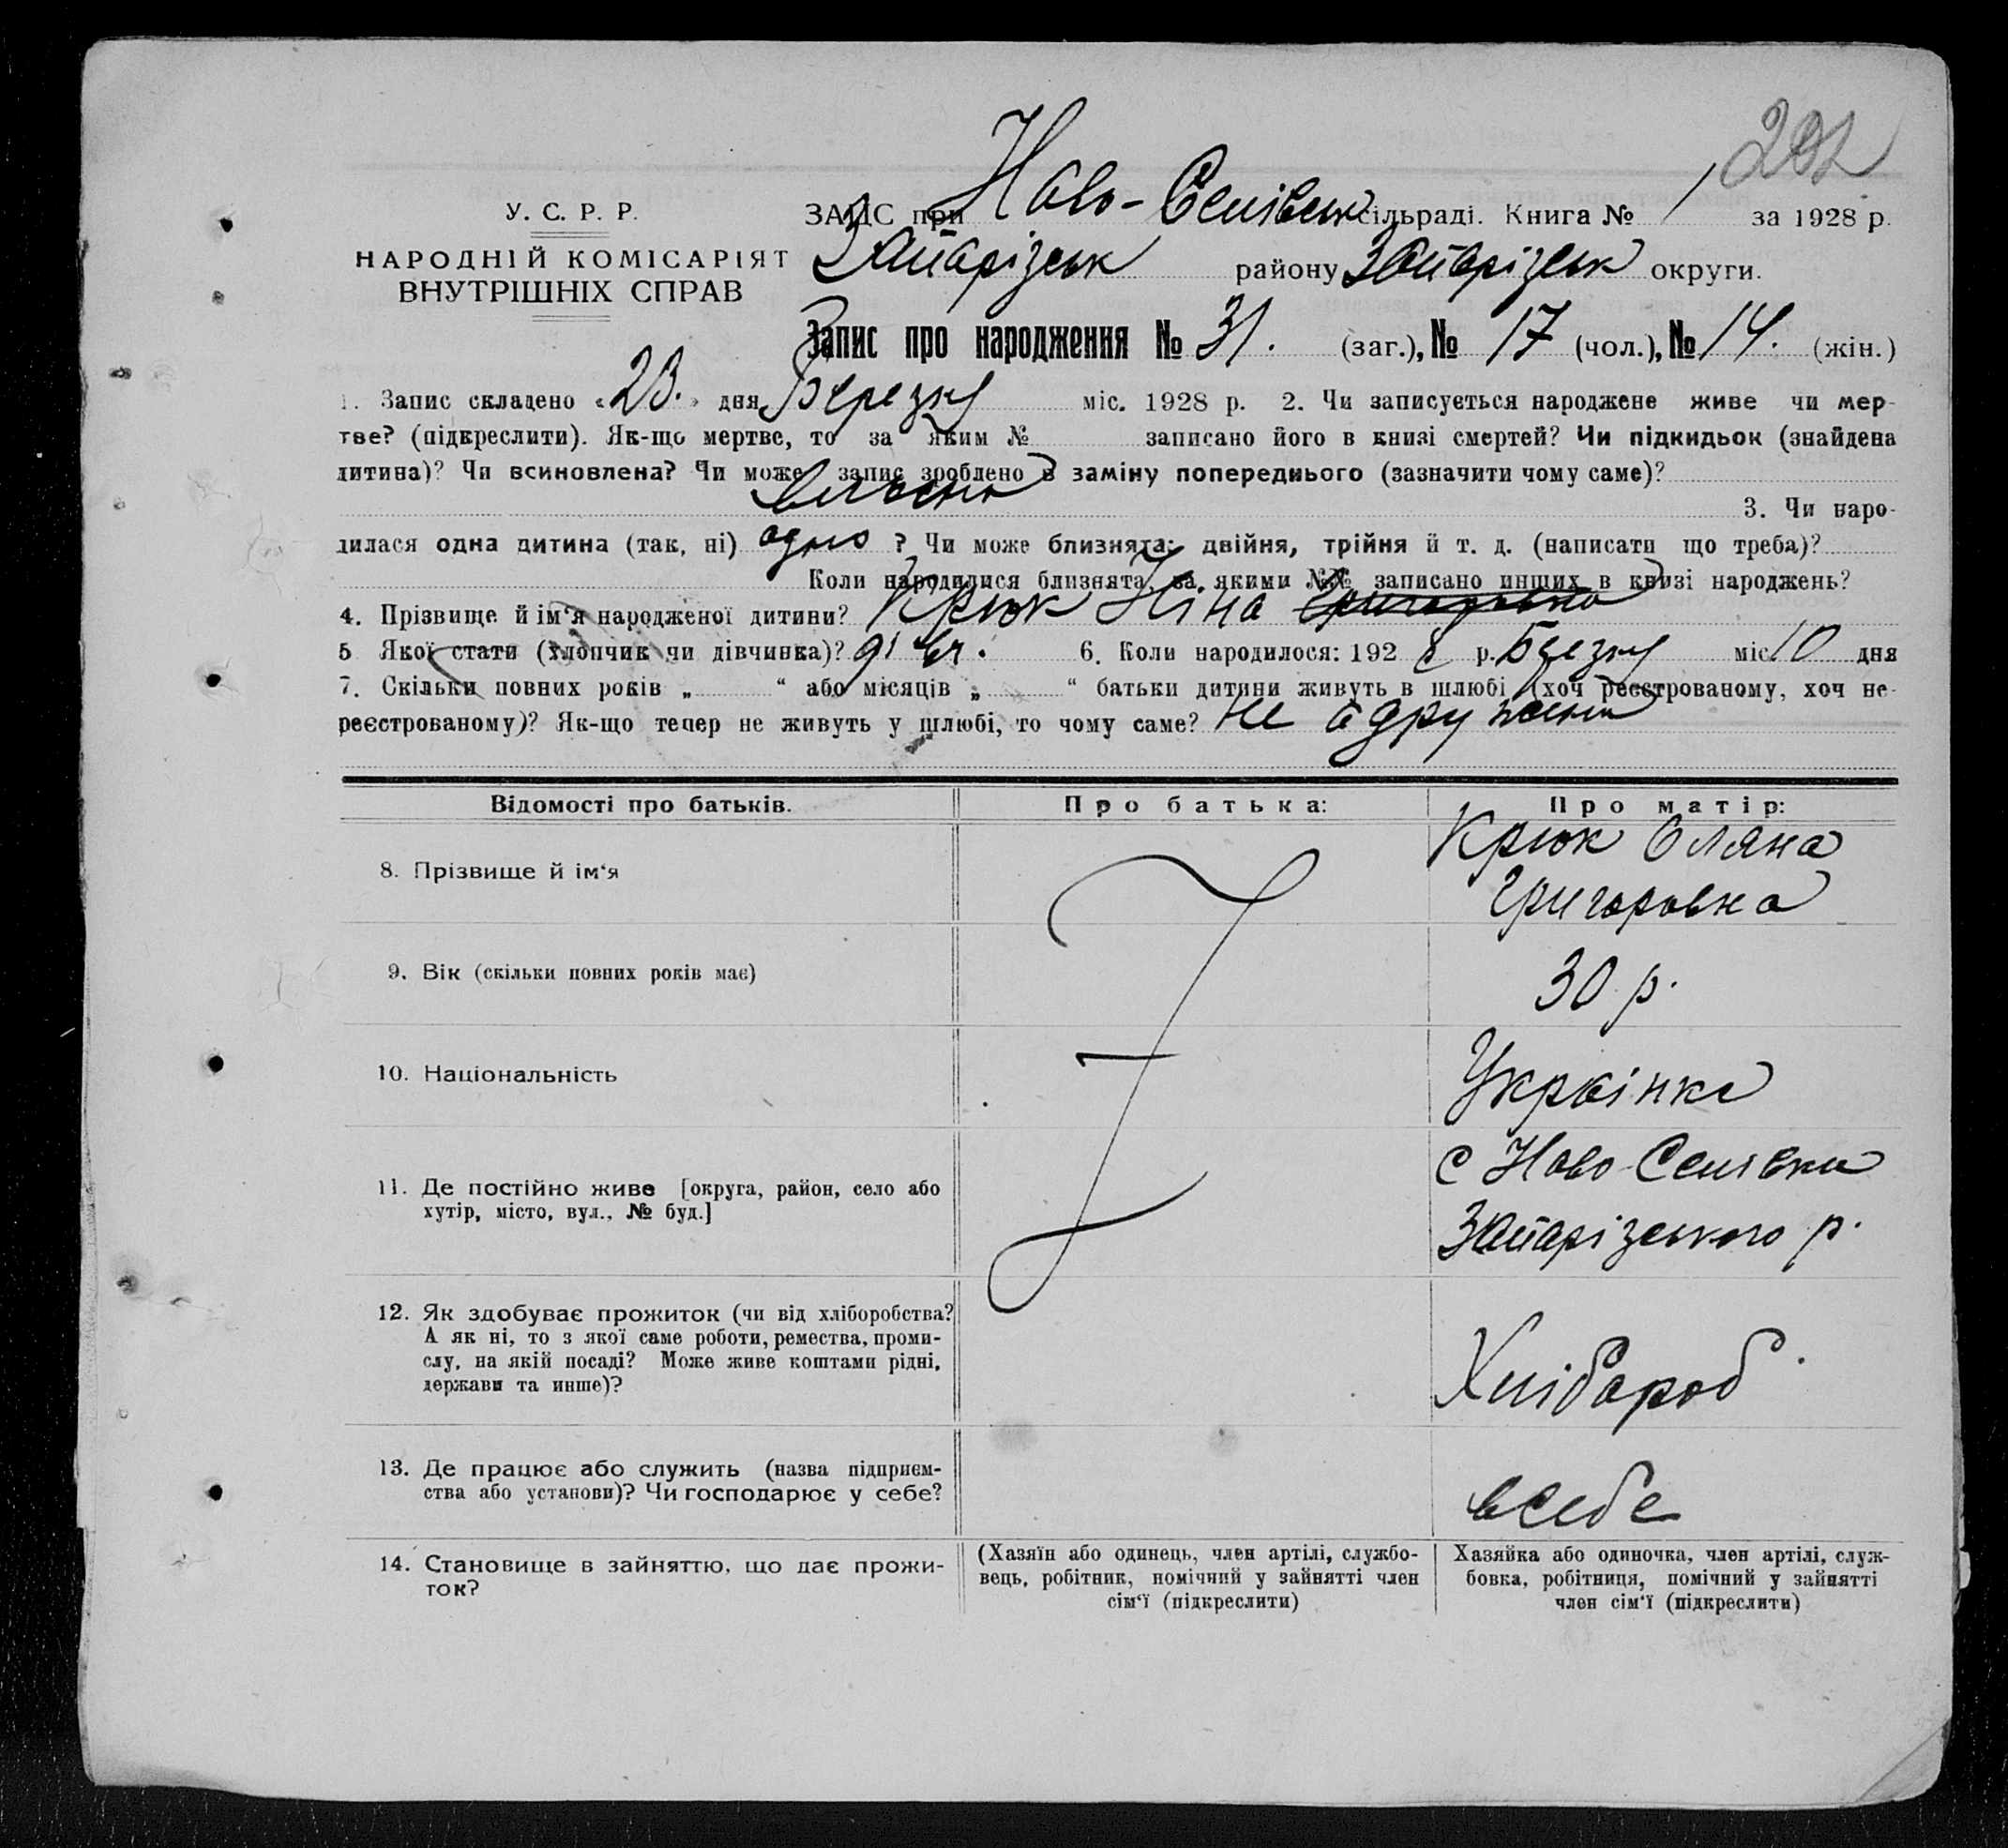 202
У. С. Р. Р.
НАРОДНІЙ КОМІСАРІЯТ
ВНУТРІШНІХ СПРАВ
ЗАЦС при Ново-Селівськ сільраді. Книга № 1 за 1928 р.
Запарізськ району Запарізськ округи.
Запис про народження № 31. (заг.), № 17 (чол.), № 14. (жін.)
1. Запис складено « 23. » дня Березня міс. 1928 р. 2. Чи записується народжене живе чи мер-
тве? (підкреслити). Як-що мертве, то за яким № записано його в книзі смертей? Чи підкидьок (знайдена
дитина)? Чи всиновлена? Чи може запис зроблено в заміну попереднього (зазначити чому саме)?
3. Чи наро-
дилася одна дитина (так, ні) одно ? Чи може близнята: двійня, трійня й т. д. (написати що треба)?
Коли народилися близнята, за якими №№ записано инших в книзі народжень?
4. Прізвище й ім'я народженої дитини? Крюк Ніна Григоровна
5 Якої статі (хлопчик чи дівчинка)? дівч. 6. Коли народилося: 192 8 р. Березня міс 10 дня
7. Скільки повних років „ “ або місяців „ “ батьки дитини живуть в шлюбі (хоч реєстрованому, хоч не-
реєстрованому)? Як-що тепер не живуть у шлюбі, то чому саме? не одружени
Відомості про батьків.
Про батька:
Про матір:
8. Прізвище й ім'я
Крюк Оляна
Григоровна
9. Вік (скільки повних років має)
30 р.
10. Національність
Українка
11. Де постійно живе [округа, район, село або
хутір, місто, вул., № буд.]
с Ново-Селівка
Запарізського р.
12. Як здобуває прожиток (чи від хліборобства?
А як ні, то з якої саме роботи, ремества, проми-
слу, на якій посаді? Може живе коштами рідні,
держави та инше)?
Хлібороб
13. Де працює або служить (назва підприєм-
ства або установи)? Чи господарює у себе?
всебе
14. Становище в зайняттю, що дає прожи-
ток?
(Хазяїн або одинець, член артілі, службо-
вець, робітник, помічний у зайнятті член
сім'ї (підкреслити)
Хазяйка або одиночка, член артілі, служ-
бовка, робітниця, помічний у зайнятті
член сім'ї (підкреслити)